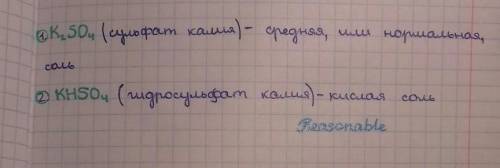 ① K₂SO₄ (сульфат калия) - средняя, или нормальная,
соль
② KHSO₄ (гидросульфат калия) - кислая соль
Reasonable